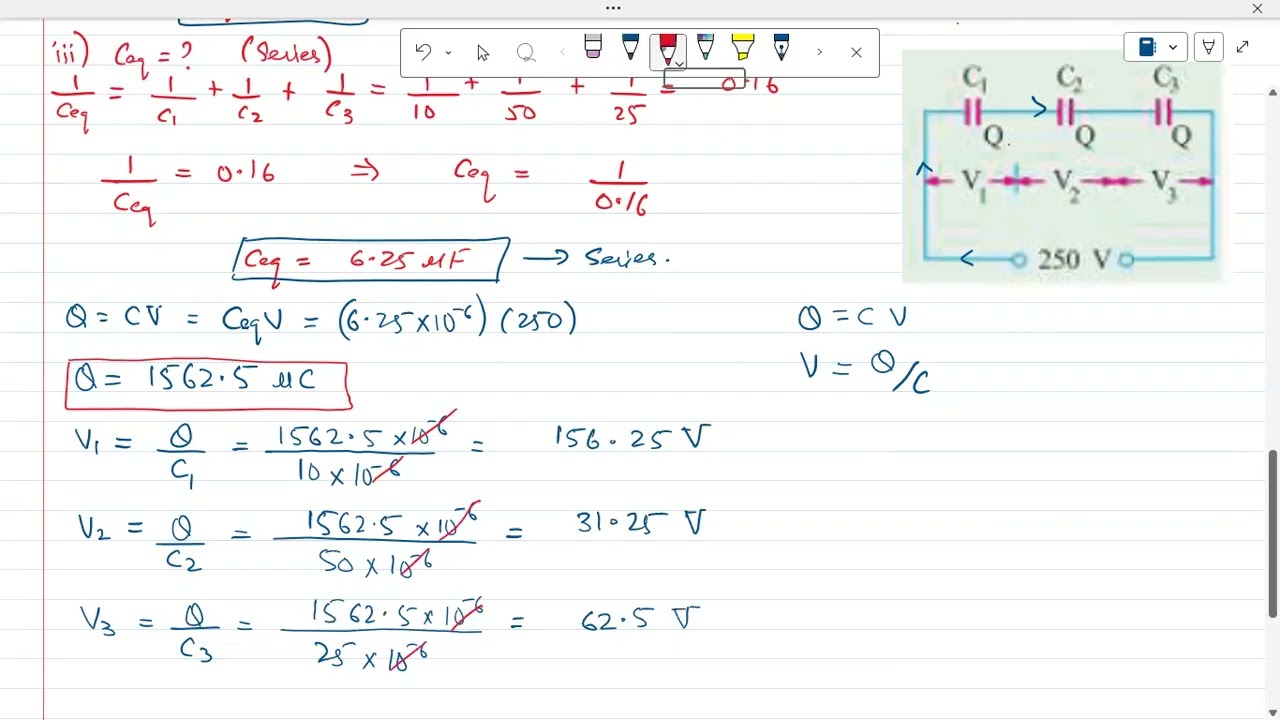 iii) Ceq = ? (Series)
1/Ceq = 1/C1 + 1/C2 + 1/C3 = 1/10 + 1/50 + 1/25 = 0.16
1/Ceq = 0.16 ⇒ Ceq = 1/0.16
Ceq = 6.25 μF → Series.
Q = CV = CeqV = (6.25×10⁻⁶) (250)
Q = 1562.5 μC
V1 = Q/C1 = 1562.5 × 10⁻⁶ / 10 × 10⁻⁶ = 156.25 V
V2 = Q/C2 = 1562.5 × 10⁻⁶ / 50 × 10⁻⁶ = 31.25 V
V3 = Q/C3 = 1562.5 × 10⁻⁶ / 25 × 10⁻⁶ = 62.5 V
C1 C2 C3
Q Q Q
V1 V2 V3
250 V
Q = C V
V = Q/C